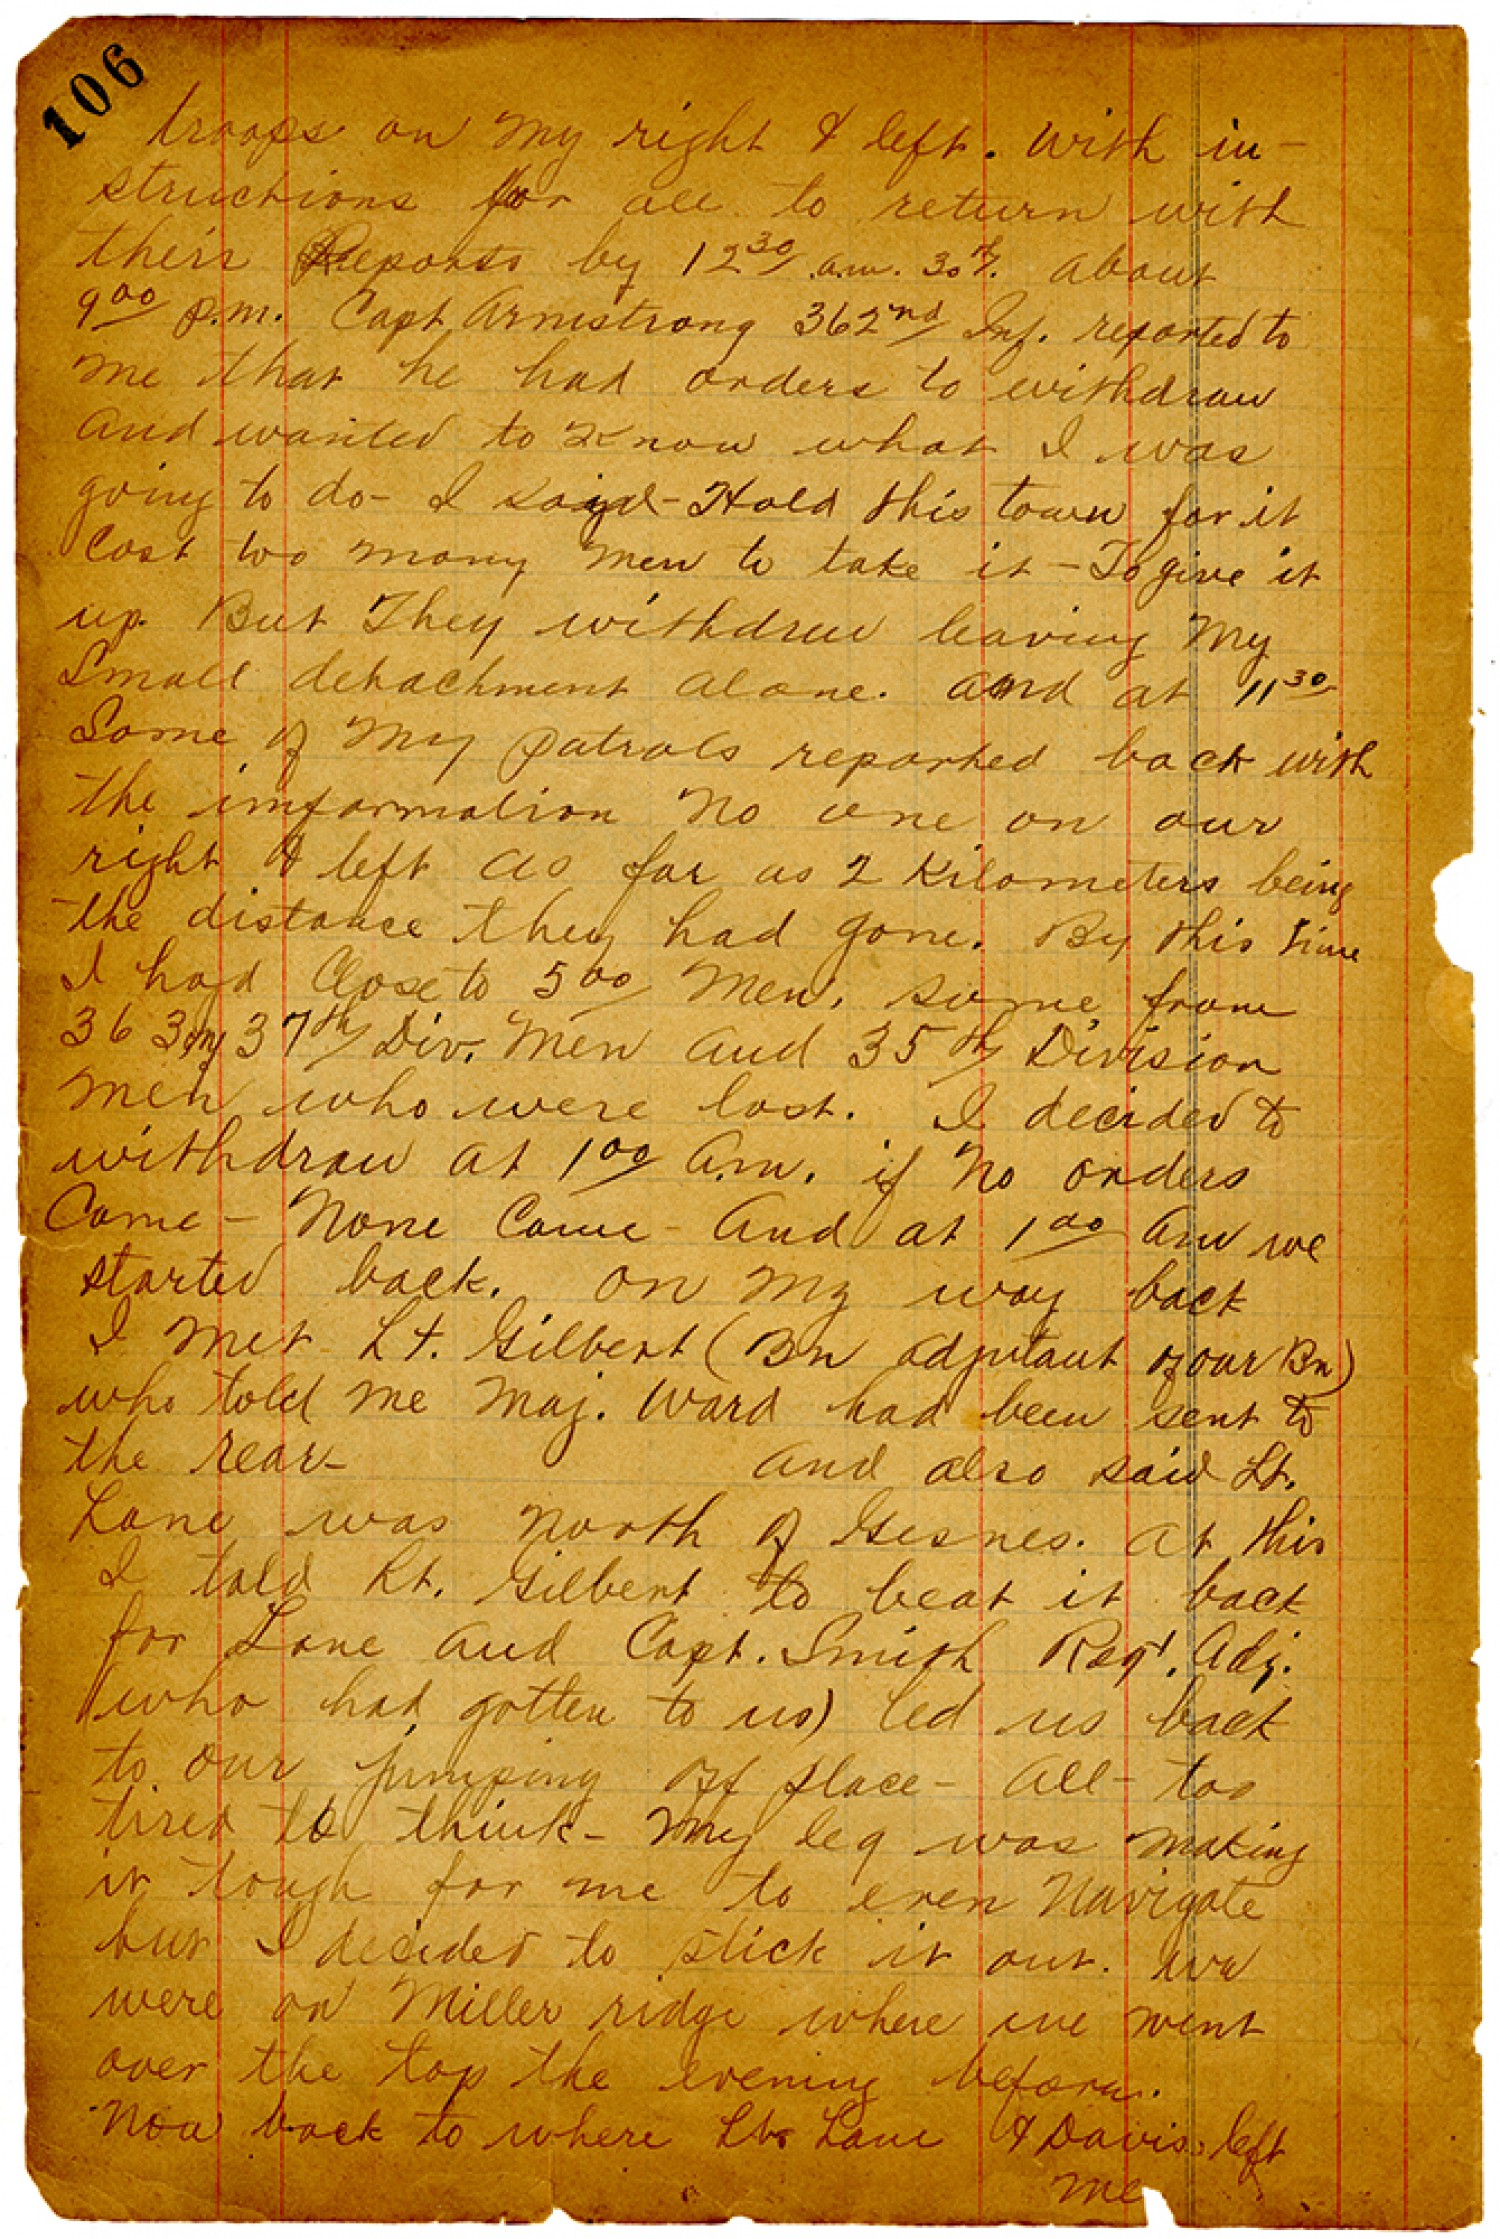 106
troops on my right & left. With in-
structions for all to return with
their Reports by 12 30 a.m. 30th. About
9 00 p.m. Capt Armstrong 362nd Inf. reported to
me that he had orders to withdraw
and wanted to know what I was
going to do - I said - Hold this town for it
cost too many men to take it - To give it
up. But They withdrew leaving My
Small detachment alone. and at 11 30
Some of My patrols reported back with
the imformation No one on our
right & left as far as 2 Kilometers being
the distance they had gone. By this time
I had Close to 500 Men, some from
363 37th Div. Men and 35th Division
men who were lost. I decided to
withdraw at 1 00 A.m. if No orders
Came - None Came - And at 1 00 Am we
started back. On My way back
I Met Lt. Gilbert (Bn adjutant of our Bn)
who told me Maj. Ward had been sent to
the rear - And also said Lt.
Lane was North of Gesnes. At this
I told Lt. Gilbert to beat it back
for Lane and Capt. Smith Regt. Adj.
(who had gotten to us) led us back
to our jumping off place - All - too
tired to think - My leg was making
it tough for me to even Navigate
but I decided to stick it out. We
were on Miller ridge where we went
over the top the evening before.
Now back to where Lts Lane & Davis left
me